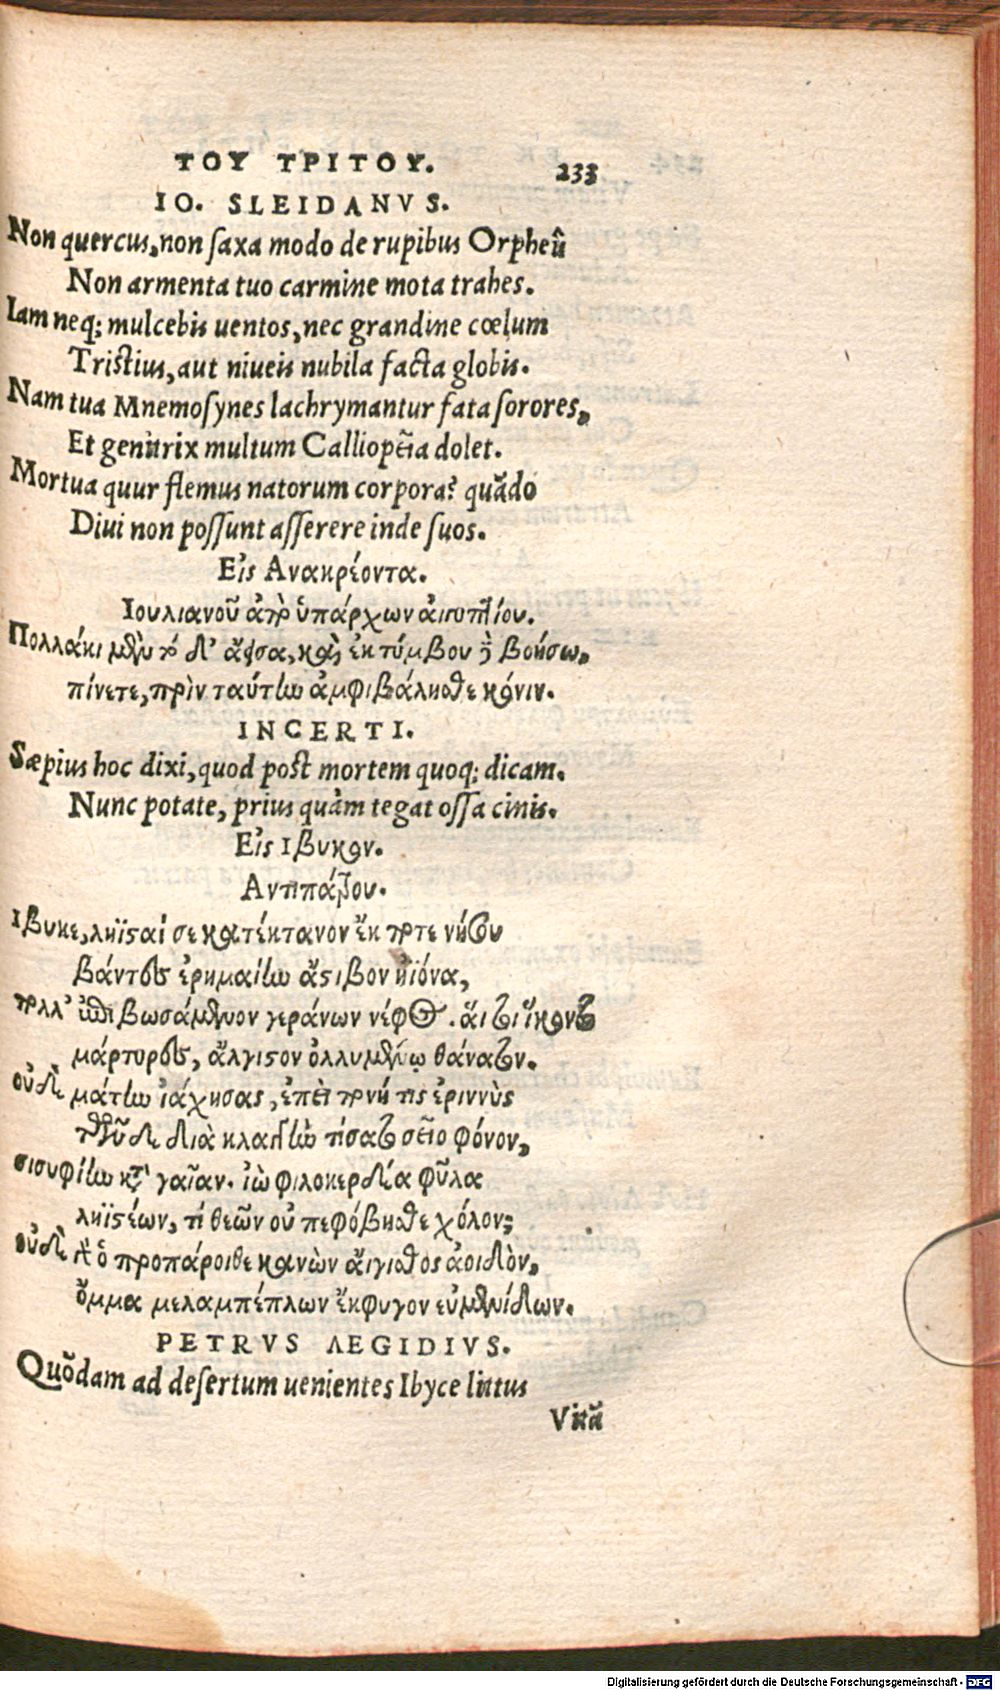 ΤΟΥ ΤΡΙΤΟΥ. 233
IO. SLEIDANVS.
Non quercus, non saxa modo de rupibus Orpheû
Non armenta tuo carmine mota trahes.
Iam neq; mulcebis uentos, nec grandine cœlum
Tristius, aut niueis nubila facta globis.
Nam tua Mnemosynes lachrymantur fata sorores,
Et genitrix multum Calliopẽia dolet.
Mortua quur flemus natorum corpora? quãdo
Diui non possunt asserere inde suos.
Εἰς Ανακρέοντα.
Ιουλιανοῦ ἀπὸ ὑπάρχων ἀιγυπτίου.
Πολλάκι μὲν τό δ' ἄεισα, καὶ ἐκ τύμβου δὲ βοήσω,
πίνετε, πρὶν ταύτην ἀμφιβάλησθε κόνιν.
INCERTI.
Sæpius hoc dixi, quod post mortem quoq; dicam.
Nunc potate, prius quàm tegat ossa cinis.
Εἰς Ιβυκον.
Αντιπάτρου.
Ιβυκε, ληϊσταί σε κατέκτανον ἔκ ποτε νήσου
βάντ' ἐς ἐρημαίην ἄστιβον ἠϊόνα,
πολλ' ἐπιβωσάμενον γεράνων νέφος. ἅι τοι ἵκοντο
μάρτυρες, ἄλγιστον ὀλλυμένῳ θάνατον.
οὐδὲ μάτην ἰάχησας, ἐπεὶ ποινή τις ἐριννὺς
τῶνδε διὰ κλαγγὴν τίσατο σεῖο φόνον,
σισυφίην κατὰ γαῖαν. ἰὼ φιλοκερδέα φῦλα
ληϊστέων, τί θεῶν οὐ πεφόβησθε χόλον;
οὐδὲ γὰρ ὁ προπάροιθε κανὼν ἄιγισθος ἀοιδὸν,
ὄμμα μελαμπέπλων ἔκφυγον εὐμενίδων.
PETRVS AEGIDIVS.
Quõdam ad desertum uenientes Ibyce littus
Vitã
Digitalisierung gefördert durch die Deutsche Forschungsgemeinschaft - DFG